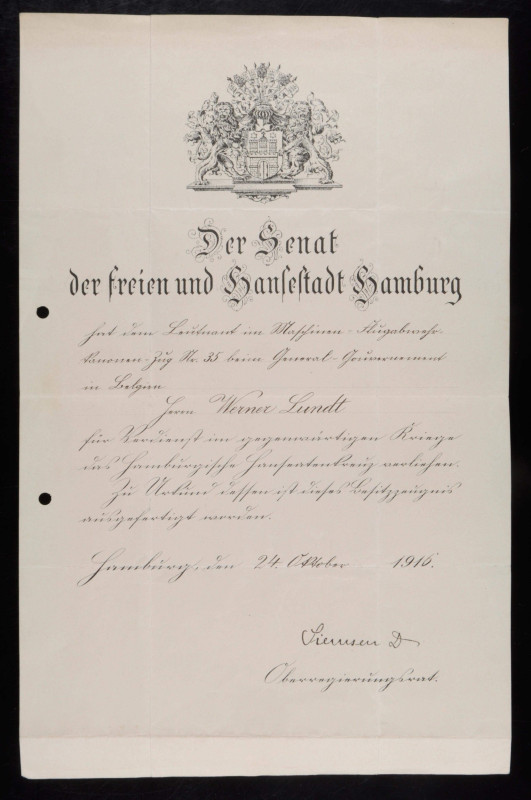 Der Senat
der freien und Hansestadt Hamburg
hat dem Leutnant im Maschinen-Flugabwehr-
kanonen-Zug Nr. 35 beim General-Gouvernement
in Belgien
Herrn Werner Lundt
für Verdienst im gegenwärtigen Kriege
das Hamburgische Hanseatenkreuz verliehen.
Zu Urkund dessen ist dieses Besitzzeugnis
ausgefertigt worden.
Hamburg, den 24. Oktober 1916.
Siemsen D
Oberregierungsrat.